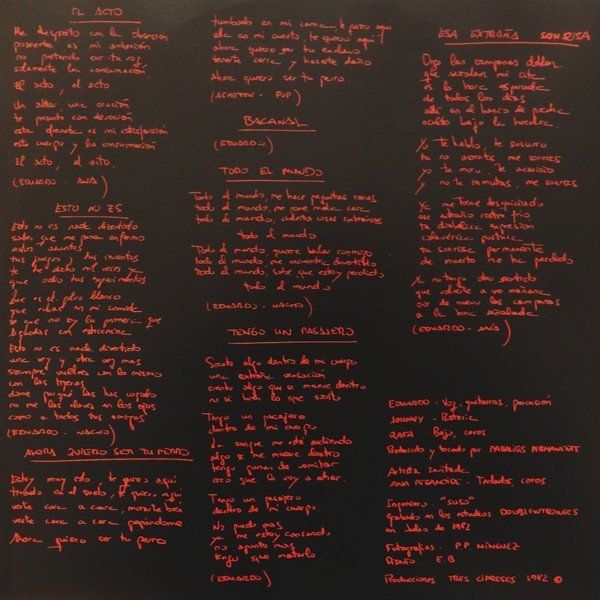 EL ACTO
Me despierto con la obsesión
poseerte es mi ambición
no pretendo oir tu voz
solamente la consumación
El acto, el acto.
Un altar, una oración
te pesinto con devoción
esta ofrenda es mi satisfacción
este cuerpo y la consumación
El acto, el acto.
(EDUARDO - ANA)
ESTO NO ES
Esto no es nada divertido
sabes que me ponen enfermo
estos asuntos
tus juegos y tus inventos
te he dicho mil veces ya
que odio tus experimentos
que es el polvo blanco
que has en mi comida
se que no soy la primera que
con estricnina
Esto no es nada divertido
una vez y otra vez mas
siempre vuelves con lo mismo
con las tijeras
dime porqué las has cogido
no me las claves en los ojos
como a todos tus amigos
(EDUARDO - NACHO)
AHORA QUIERO SER TU PERRO
Estoy muy solo, te quiero aquí
tirado en el suelo, te quiero aquí
verte cara a cara,
verte cara a cara pegándome
Ahora quiero ser tu perro
tumbado en mi cama, te quiero aquí
ata en mi cuarto, te quiero aquí
ahora quiero ser tu esclavo
tenerte cerca y hacerte daño
Ahora quiero ser tu perro.
(ASHETON - POP)
BACANAL
(EDUARDO)
TODO EL MUNDO
Todo el mundo, me hace preguntas raras
todo el mundo, me pone mala cara
todo el mundo, cuenta cosas extrañas
todo el mundo
Todo el mundo, quiere bailar conmigo
todo el mundo, me encuentra divertido
todo el mundo, sabe que estoy perdido
todo el mundo
(EDUARDO - NACHO)
TENGO UN PASAJERO
Siento algo dentro de mi cuerpo
una extraña sensación
siento algo que se mueve dentro
no se todo lo que siento
Tengo un pasajero
dentro de mi cuerpo
la sangre me está ardiendo
algo se me mueve dentro
tengo ganas de vomitar
creo que lo voy a echar.
Tengo un pasajero
dentro de mi cuerpo.
No puedo mas
Y me estoy cansando
no aguanto mas
tengo que matarlo.
(EDUARDO)
ESA EXTRAÑA SONRISA
Oigo las campanas doblar
que señalan mi cita
es la hora esperada
de todos los días
allí en el banco de piedra
oculto bajo la hiedra.
Yo te hablo, te susurro
tu no asientes, me sonries
yo te miro, te acaricio
y no te inmutas, me sonries
Ya me tiene desquiciado
ese extraño rostro frio
tu diabólica expresión
cadavérica postura
tu sonrisa permanente
de muerto me ha perdido
Ya no tengo otro sentido
que volverte a ver mañana
oir de nuevo las campanas
a la hora señalada.
(EDUARDO - ANA)
EDUARDO - Voz, guitarras, percusión
JOHNNY - Batería
RAFA - Bajo, coros.
Producido y tocado por PARALISIS PERMANENTE
Artista Invitada
ANA PEGAMOIDE - Teclados, coros
Ingeniero - "SUSO"
grabado en los estudios DOUBLEWTRONICS
en Julio de 1982
Fotografías - P.P. MINGUEZ
Diseño - E.B.
Producciones TRES CIPRESES 1982 ©